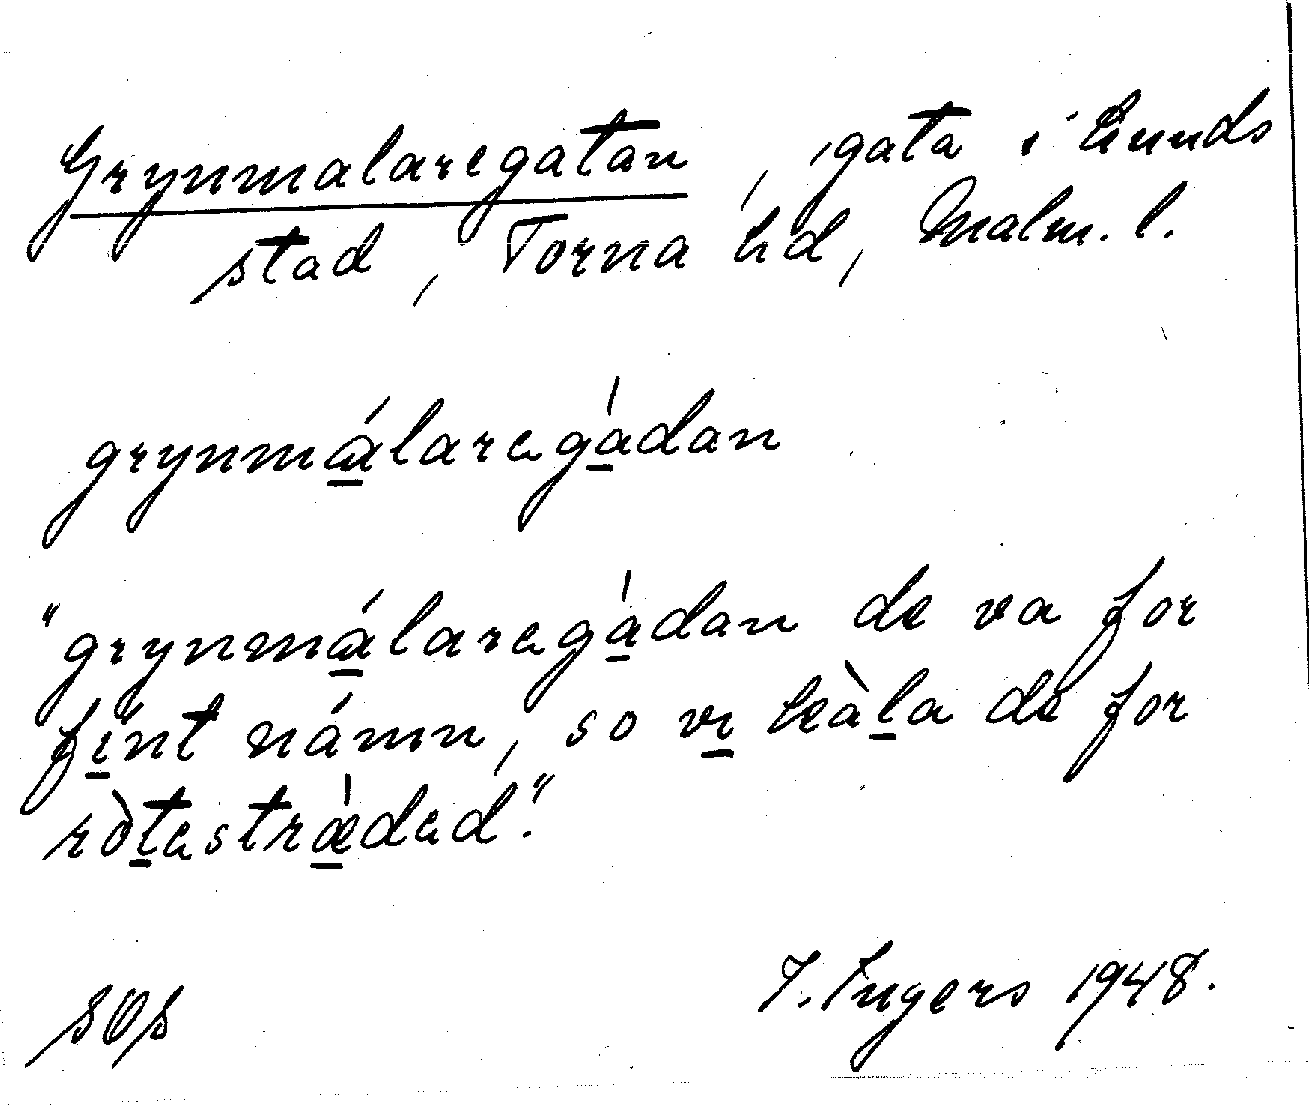 Grynmalaregatan, gata i Lunds
stad, Torna hd, Malm. l.
grynmálaregádan
"grynmálaregádan de va for
fint námn, so vi kàla de for
ròtestræded."
I. Ingers 1948.